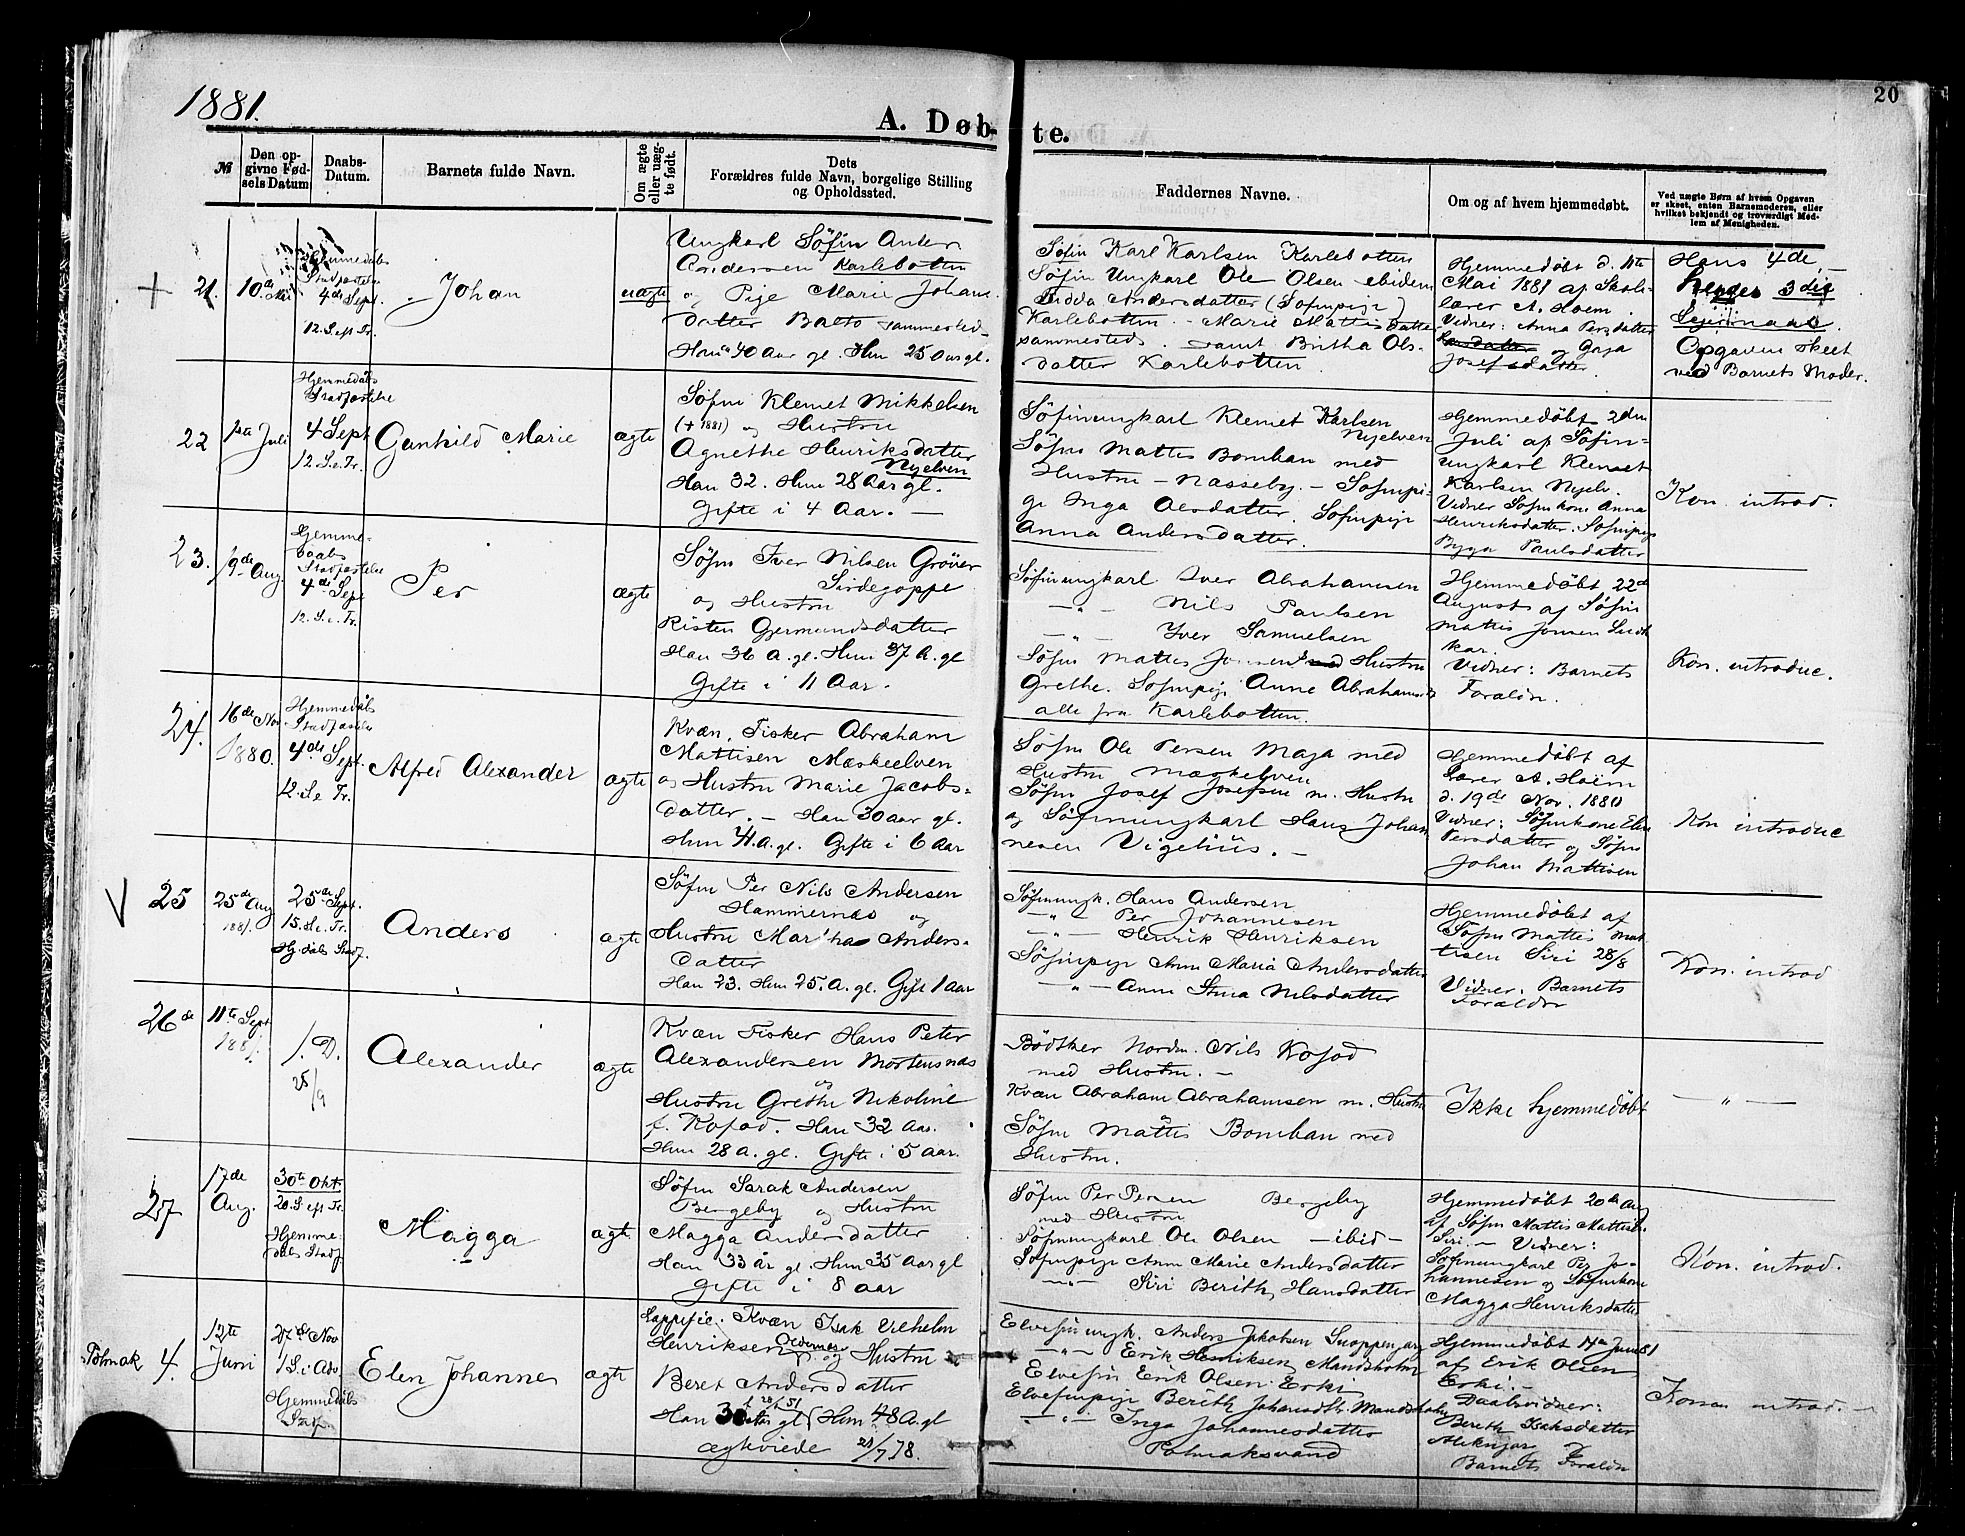 1881.
20
A. Døb-
te.
№
Den op-
givne Fød-
sels Datum
Daabs-
Datum.
Barnets fulde Navn.
Om ægte
eller uæg-
te født.
Dets
Forældres fulde Navn, borgelige Stilling
og Opholdssted.
Faddernes Navne.
Om og af hvem hjemmedøbt.
Ved uægte Børn af hvem Opgaven
er skeet, enten Barnemoderen, eller
hvilket bekjendt og troværdigt Med-
lem af Menigheden.
21.
10de Mai
Hjemmedåbs
Stadfæstelse
4de Sept.
12. S. eft Tr.
Johan
uægte
Ungkarl Søfin Anders
Andersen Karlebotten
og Pige Marie Johans-
datter Balto sammesteds
Han 40 Aar gl. Hun 25 Aar gl.
Søfin Karl Karlsen Karlebotten
Søfin Ungkarl Ole Olsen ibidem
Andersdatter (Søfinpige)
Karlebotten. - Marie Mattisdatter
sammesteds. samt Britha Ols-
datter Karlebotten.
Hjemmedøbt d. 11te
Mai 1881 af Skole-
lærer A. Hoem.
Vidner: Anna Persdatter
og Gaja
Josefsdatter.
Hans 4de,
hendes 3die
Leiermaal.
Opgaven skeet
ved Barnets Moder.
22
1ste Juli
Hjemmedåbs
Stadfæstelse
4 Sept
12 S. e. Tr.
Gunhild Marie
ægte
Søfin Klemet Mikkelsen
(+ 1881) og Hustru
Agnethe Henriksdatter
Nyelven
Han 32. Hun 28 Aar gl.
Gifte i 4 Aar. -
Søfinungkarl Klemet Karlsen
Nyelven
Søfin Mattis Bomban med
Hustru - Nesseby. - Søfinpi-
ge Inga Olsdatter. Søfinpige
Anna Andersdatter.
Hjemmedøbt 2den
Juli af Søfin-
ungkarl Klemet
Karlsen Nyelv.
Vidner Søfinkone Anna
Henriksdatter. Søfinpige
Paulsdatter
Kon. introd.
23.
19de Aug.
Hjemme-
daabs
Stadfæstelse
4de Sept
12. S. e. Tr.
Per
ægte
Søfin Iver Nilsen Grøner
Sirdegoppe
og Hustru
Risten Gjermundsdatter
Han 36 A. gl. Hun 37 A. gl
Gifte i 11 Aar.
Søfinungkarl Iver Abrahamsen
-"- Nils Paulsen
-"- Iver Samuelsen
Søfin Mattis Jonsen med Hustru
Grethe. Søfinpige Anne Abrahamsd.
alle fra Karlebotten.
Hjemmedøbt 22de
August af Søfin
Mattis Jonsen
Vidner: Barnets
Foraldre.
Kon. introduc.
24.
16de Nov
1880.
Hjemmedåbs
Stadfæstelse
4de Sept.
12. S. e Tr.
Alfred Alexander
ægte
Kvæn. Fisker Abraham
Mattisen Mæskeelven
og Hustru Marie Jacobs-
datter. - Han 30 aar gl.
Hun 41. A. gl. Gifte i 6 Aar
Søfin Ole Persen Maja med
Hustru Mæskelven
Søfin Josef Josefsen m. Hustru
og Søfinungkarl Hans Johan-
nesen Vigeliis. -
Hjemmedøbt af
Lærer A. Hoëm
d. 19de Nov. 1880
Vidner: Søfinkone Elen
Persdatter og Søfin
Johan Mattisen
Kon introduc
25
25de Aug
1881.
25de Sept.
15. S. e. Tr.
Hj. dåbs Stadf.
Anders
ægte
Søfin Per Nils Andersen
Hammernæs og
Hustru Maritha Anders-
datter
Han 23. Hun 25. A. gl. Gift 1 aar
Søfinungk. Hans Andersen
-"- Per Johannesen
-"- Henrik Henriksen
Søfinpige Ane Maria Andersdatter
-"- Anne Stina Nilsdatter
Hjemmedøbt af
Søfin Mattis Mat-
tisen Siri 28/8
Vidner. Barnets
Foraldre
Kon. introd
26de
11te Sept
1881.
1. D.
25/9
Alexander
ægte
Kvæn Fisker Hans Peter
Alexandersen Mortensnæs
og
Hustru Grethe Nikoline
f. Kofod. Han 32 Aar.
Hun 28 A. gl. Gifte i 5 aar.
Bødtker Nordm. Nils Kofod
med Hustru. -
Kvæn Abraham Abrahamsen m. Hustru
og
Søfin Mattis Bomban med
Hustru.
Ikke hjemmedøbt
- " -
27
17de
Aug.
30te Okt.
20. S. eft Tr.
Hjemme-
dåbs Stadf
Magga
ægte
Søfin Sarak Andersen
Bergeby og Hustru
Magga Andersdatter
Han 33 år gl. Hun 35 Aar gl
Gifte i 8 aar
Søfin Per Persen Bergeby
med Hustru
Søfinungkarl Ole Olsen - ibid -
Søfinpige Ane Marie Andersdatter
-"- Siri Berith Hansdatter
Hjemmedøbt 20de Aug
af Søfin Mattis Mattis.
Siri. - Vidner:
Søfinungkarl Per Jo-
hannesen og Søfinkone
Magga Henriksdatter
Kon. introd.
Polmak 4.
12te
Juni
27de Nov
1 S. i Adv.
Hjemmedåbs
Stadf.
Elen Johanne
ægte
Kvæn Isak Vilhelm
Henriksen og Hustru
Beret Andersdatter
Han 30 Aar gl Hun 48 A. gl
ægteviede 28/7 78.
Elvefinungk. Anders Jakobsen
-"- Erik Henriksen Mandsholm
Elvefin Erik Olsen Erki
Elvefinpige Berith Johansdtr. Mandsholm
-"- Inga Johannesdatter
Polmaksvand
Hjemmedøbt 14de Juni 81
af Erik Olsen
Erki. -
Daabsvidner:
Berith Isaksdatter
Barnets Foraldre
Konen introd. -